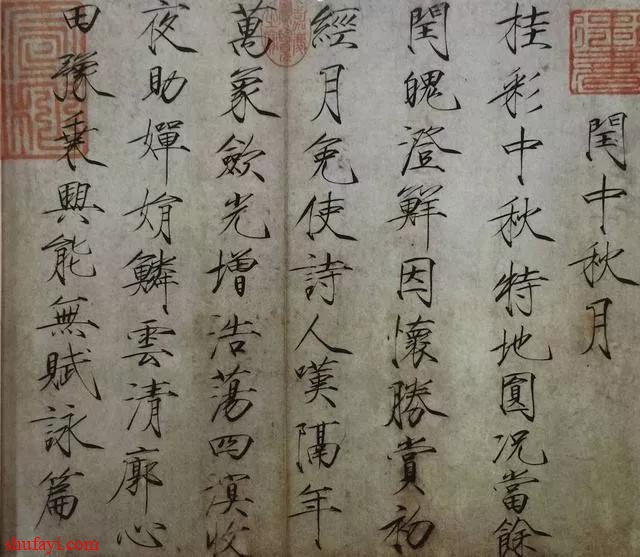 閏中秋月
桂彩中秋特地圓况當餘
閏魄澄鮮因懷勝賞初
經月免使詩人嘆隔年
萬象歛光增浩蕩四溟收
夜助嬋娟鱗雲清廓心
田豫乘興能無賦詠篇
shufayi.com